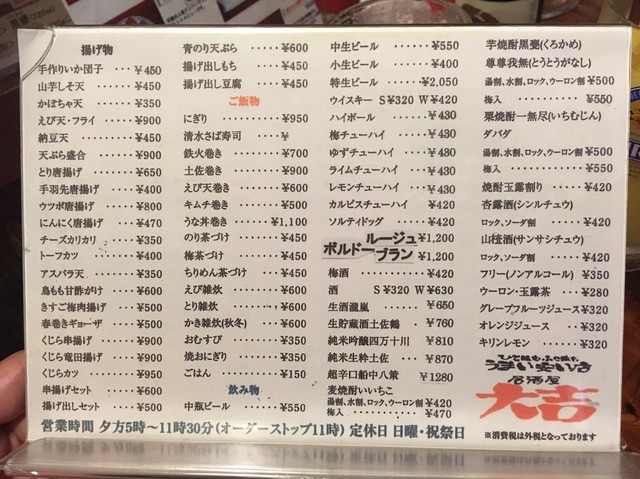 揚げ物
手作りいか団子 ・・・ ¥450
山芋しそ天 ・・・・・ ¥450
かぼちゃ天 ・・・・・ ¥350
えび天・フライ ・・・ ¥900
納豆天 ・・・・・・・ ¥450
天ぷら盛合 ・・・・・ ¥900
とり唐揚げ ・・・・・ ¥650
手羽先唐揚げ ・・・・ ¥400
ウツボ唐揚げ ・・・・ ¥800
にんにく唐揚げ ・・・ ¥470
チーズカリカリ ・・・ ¥350
トーフカツ ・・・・・ ¥400
アスパラ天 ・・・・・ ¥350
鳥もも甘酢がけ ・・・ ¥600
きすご梅肉揚げ ・・・ ¥500
春巻きギョーザ ・・・ ¥500
くじら串揚げ ・・・・ ¥500
くじら竜田揚げ ・・・ ¥900
くじらカツ ・・・・・ ¥950
串揚げセット ・・・・ ¥600
揚げ出しセット ・・・ ¥500
青のり天ぷら ・・・・・ ¥600
揚げ出しもち ・・・・・ ¥450
揚げ出し豆腐 ・・・・・ ¥450
ご飯物
にぎり ・・・・・・・・ ¥950
清水さば寿司 ・・・・・ ¥
鉄火巻き ・・・・・・・ ¥700
土佐巻き ・・・・・・・ ¥900
えび天巻き ・・・・・・ ¥600
キムチ巻き ・・・・・・ ¥500
うな丼巻き ・・・・・ ¥1,100
のり茶づけ ・・・・・・ ¥450
梅茶づけ ・・・・・・・ ¥450
ちりめん茶づけ ・・・・ ¥450
えび雑炊 ・・・・・・・ ¥600
とり雑炊 ・・・・・・・ ¥600
かき雑炊(秋冬) ・・・ ¥600
おむすび ・・・・・・・ ¥350
焼おにぎり ・・・・・・ ¥350
ごはん ・・・・・・・・ ¥150
飲み物
中瓶ビール ・・・・・・ ¥550
中生ビール ・・・・・・ ¥550
小生ビール ・・・・・・ ¥400
特生ビール ・・・・・ ¥2,050
ウイスキー S¥320 W¥420
ハイボール ・・・・・・ ¥430
梅チューハイ ・・・・・ ¥430
ゆずチューハイ ・・・・ ¥430
ライムチューハイ ・・・ ¥430
レモンチューハイ ・・・ ¥430
カルピスチューハイ ・・ ¥420
ソルティドッグ ・・・・ ¥420
ボルドー ルージュ ¥1,200
ブラン ¥1,200
梅酒 ・・・・・・・・・ ¥420
酒 S¥320 W¥630
生酒瀧嵐 ・・・・・・・ ¥650
生貯蔵酒土佐鶴 ・・・・ ¥760
純米吟醸四万十川 ・・・ ¥810
純米生粋土佐 ・・・・・ ¥870
超辛口船中八策 ・・・ ¥1280
麦焼酎いいちこ
湯割、水割、ロック、ウーロン割 ¥420
梅入 ・・・・・・・・・ ¥470
芋焼酎黒甕(くろかめ)
尊尊我無(とうとうがなし)
湯割、水割、ロック、ウーロン割 ¥500
梅入 ・・・・・・・・・ ¥550
栗焼酎一無尽(いちむじん)
ダバダ
湯割、水割、ロック、ウーロン割 ¥500
梅入 ・・・・・・・・・ ¥550
焼酎玉露割り ・・・・・ ¥420
杏露酒(シンルチュウ)
ロック、ソーダ割 ・・・ ¥420
山楂酒(サンサシチュウ)
ロック、ソーダ割 ・・・ ¥420
フリー(ノンアルコール) ¥350
ウーロン・玉露茶 ・・・ ¥280
グレープフルーツジュース ¥320
オレンジジュース ・・・ ¥320
キリンレモン ・・・・・ ¥320
うまい安いき
居酒屋
大吉
営業時間 夕方5時〜11時30分(オーダーストップ11時) 定休日 日曜・祝祭日
※消費税は外税となっております